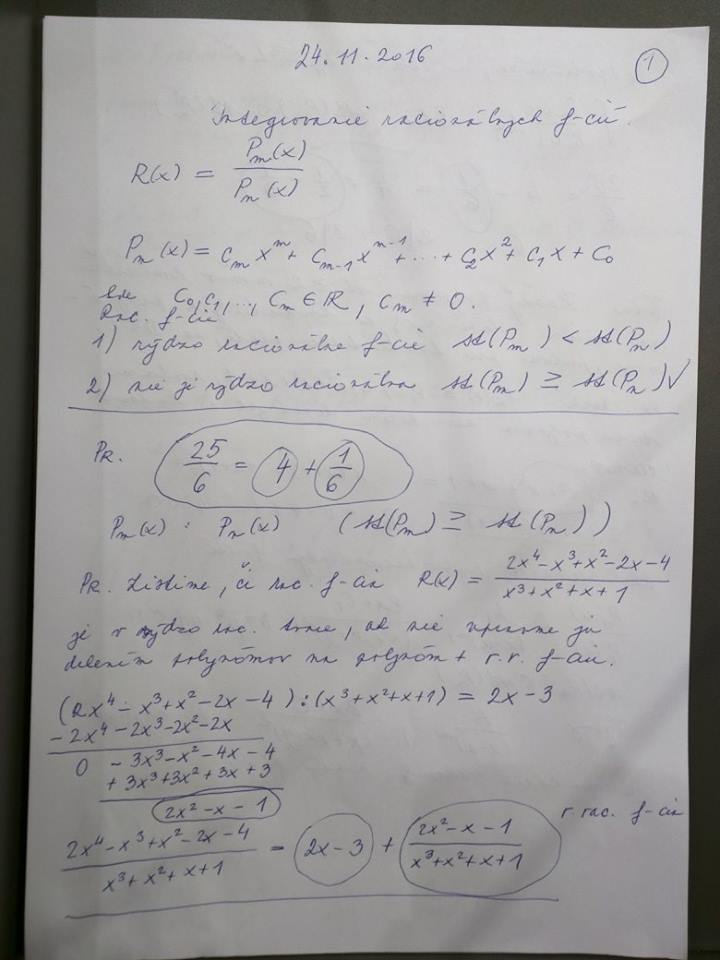 24.11.2016
1
Integrovanie racionálnych f-cií.
R(x) = Pm(x) / Pn(x)
Pm(x) = cm x^m + cm-1 x^m-1 + ... + c2x² + c1x + c0
kde c0, c1, ..., cm ∈ ℝ, cm ≠ 0.
Rac. f-cie
1) rýdzo racionálne f-cie st(Pm) < st(Pn)
2) nie je rýdzo racionálna st(Pm) ≥ st(Pn) √
Pr. 25/6 = 4 + 1/6
Pm(x) : Pn(x) (st(Pm) ≥ st(Pn))
Pr. Zistime, či rac. f-cia R(x) = 2x⁴ - x³ + x² - 2x - 4 / x³ + x² + x + 1
je v rýdzo rac. tvare, ak nie upravme ju
delením polynómov na polynóm + r.r. f-ciu.
(2x⁴ - x³ + x² - 2x - 4) : (x³ + x² + x + 1) = 2x - 3
- 2x⁴ - 2x³ - 2x² - 2x
0 - 3x³ - x² - 4x - 4
+ 3x³ + 3x² + 3x + 3
2x² - x - 1
2x⁴ - x³ + x² - 2x - 4 / x³ + x² + x + 1 = 2x - 3 + 2x² - x - 1 / x³ + x² + x + 1 r. rac. f-cia